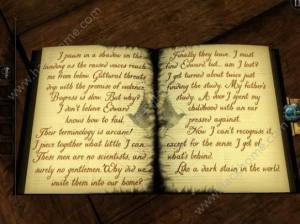 I pause in a shadow on the
landing as the raised voices reach
me from below. Guttural threats
drip with the promise of violence.
Progress is slow. But why?
I don't believe Edward
knows how to fail.
Their terminology is arcane!
I piece together what little I can.
These men are no scientists, and
surely no gentlemen. Why did we
invite them into our home?
Finally they leave. I must
find Edward but... am I lost?
I get turned about twice just
finding the study. My father's
study. A door I spent my
childhood with an ear
pressed against.
Now I can't recognise it,
except for the sense I get of
what's behind.
Like a dark stain in the world.